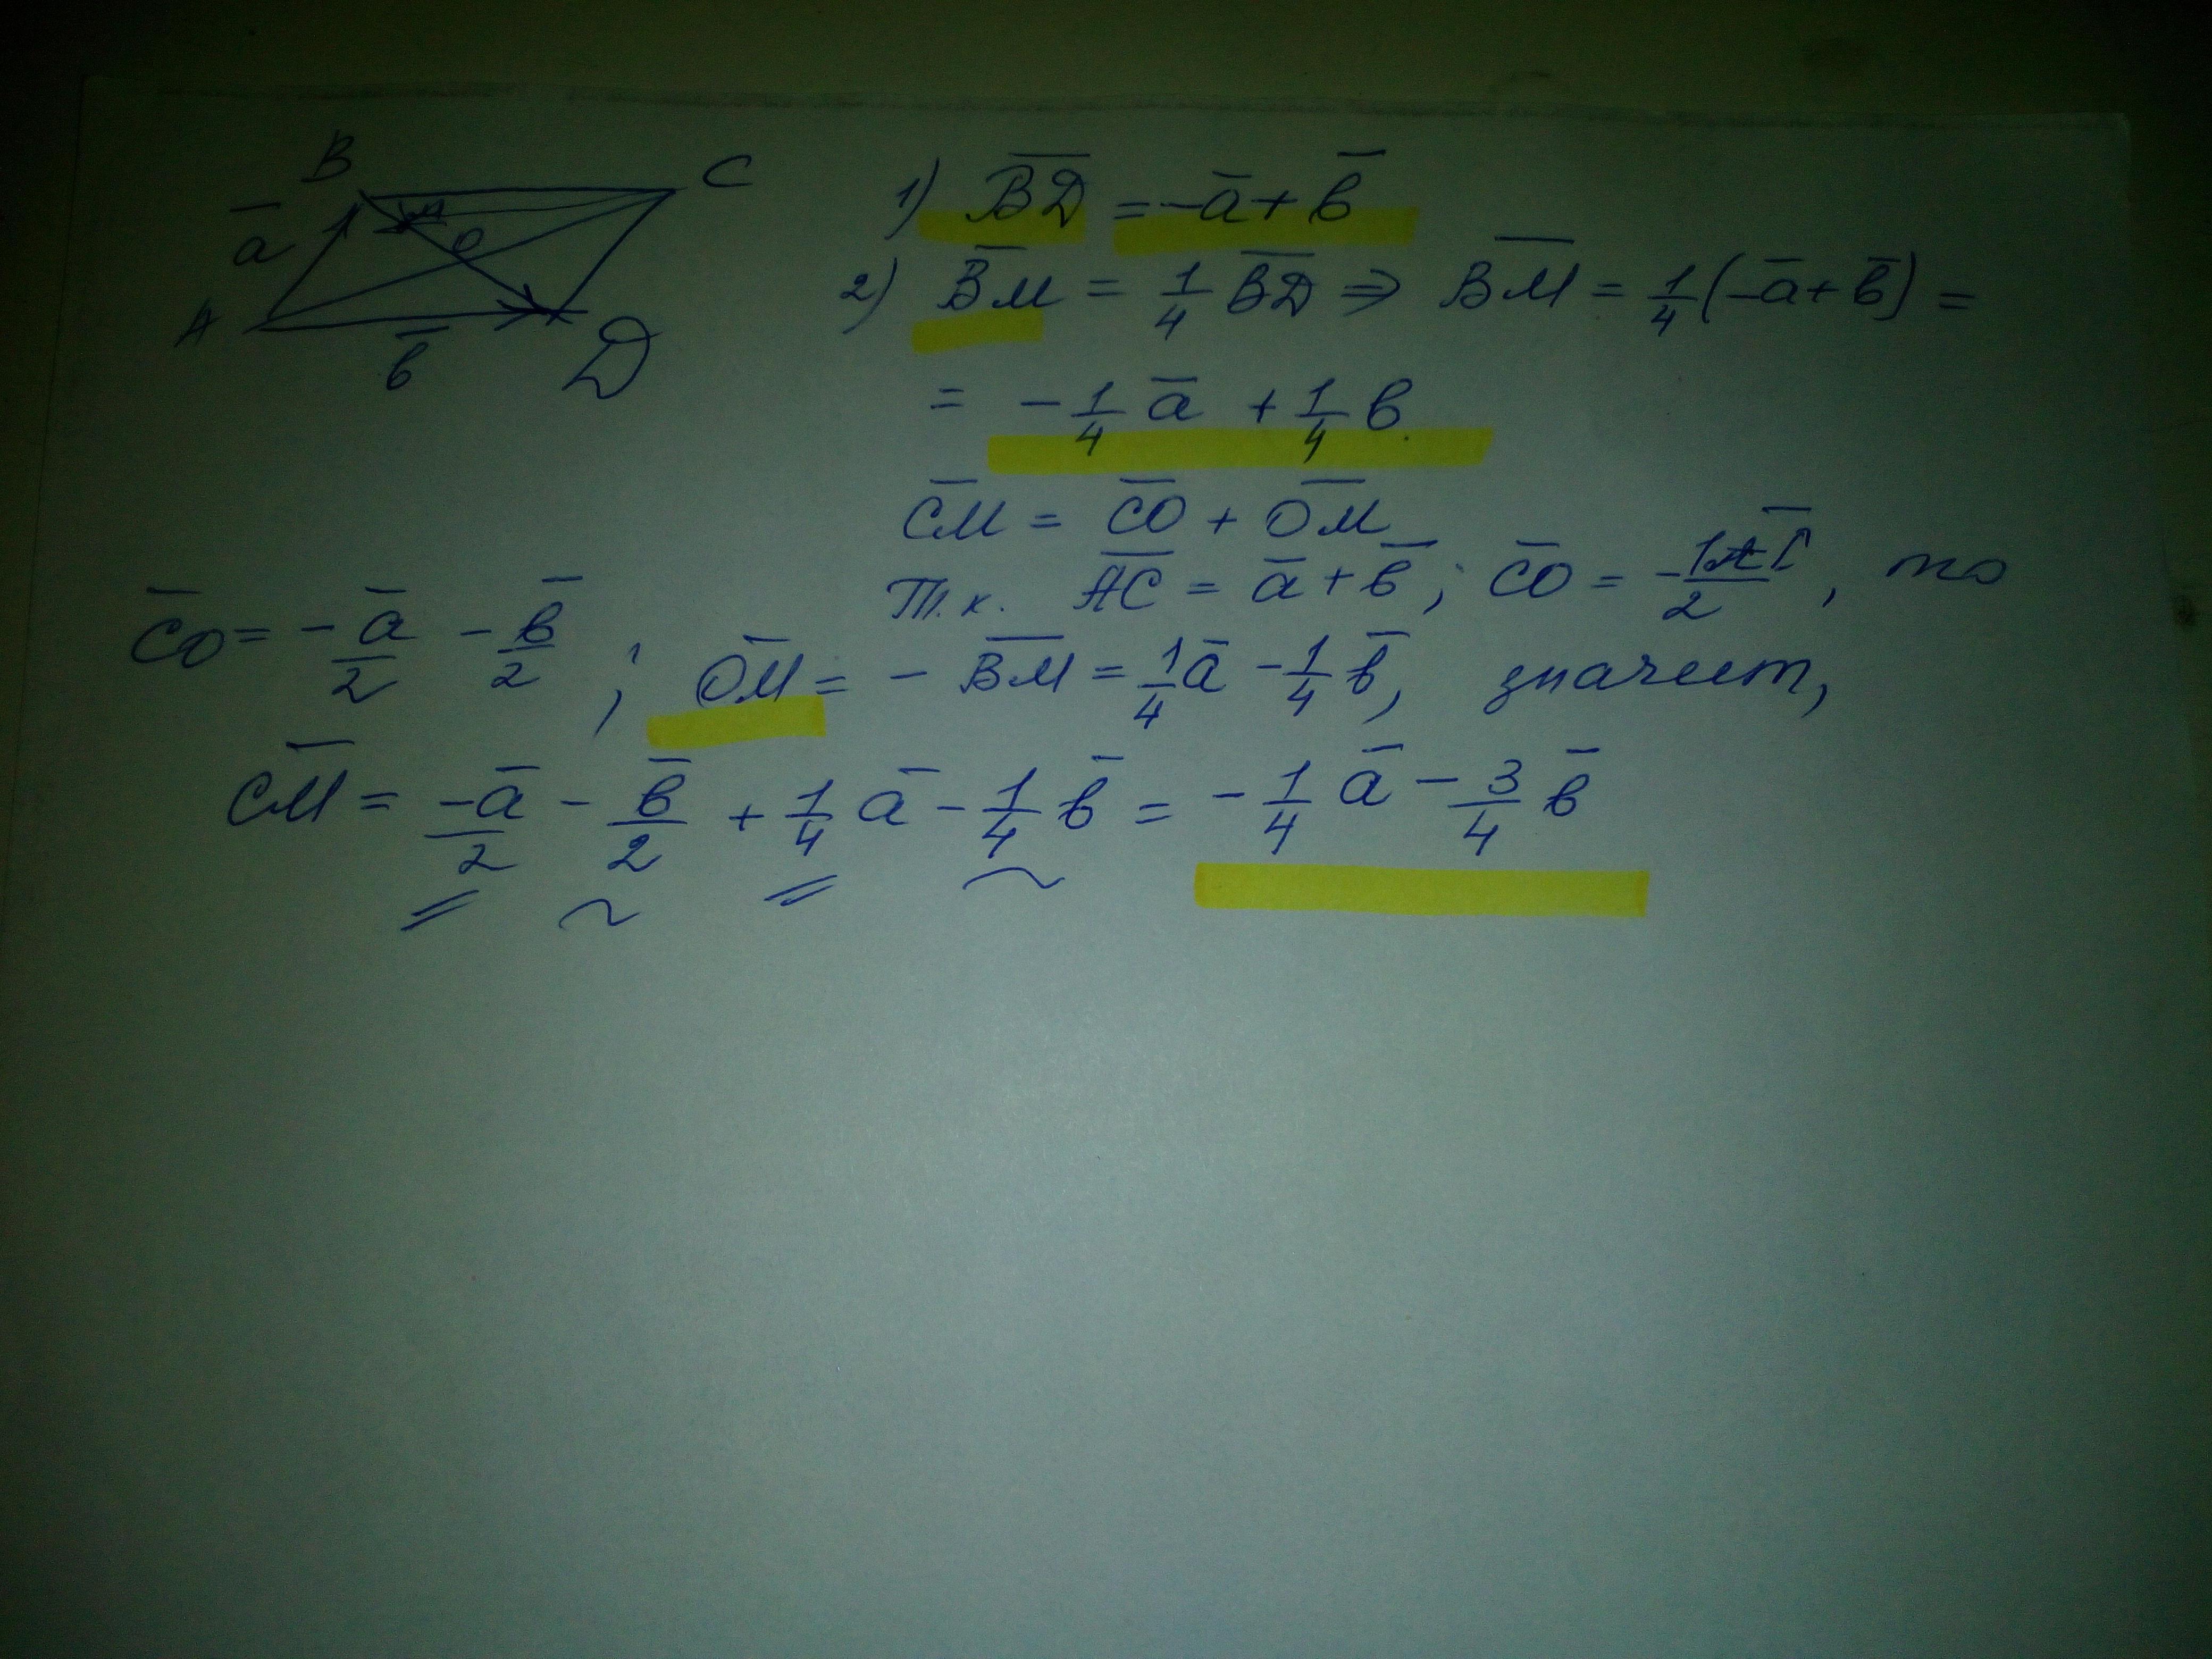 B C
a̅
A b̅ D
M O
1) B̅D̅ = -a̅ + b̅
2) B̅M̅ = 1/4 B̅D̅ ⇒ B̅M̅ = 1/4 (-a̅ + b̅) =
= - 1/4 a̅ + 1/4 b.
C̅M̅ = C̅O̅ + O̅M̅
Т.к. A̅C̅ = a̅ + b̅; C̅O̅ = - 1A̅C̅/2, то
C̅O̅ = - a̅/2 - b̅/2 ; O̅M̅ = - B̅M̅ = 1/4 a̅ - 1/4 b̅, значит,
C̅M̅ = -a̅/2 - b̅/2 + 1/4 a̅ - 1/4 b̅ = - 1/4 a̅ - 3/4 b̅